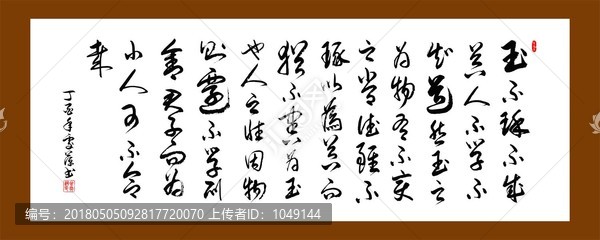 玉不琢不成
器人不學不
知道然玉之
為物有不變
之常德雖不
琢以為器而
猶不害為玉
也人之性因物
則遷不學則
舍君子而為
小人可不念
哉
丁酉年
编号：20180505092817720070 上传者ID：1049144